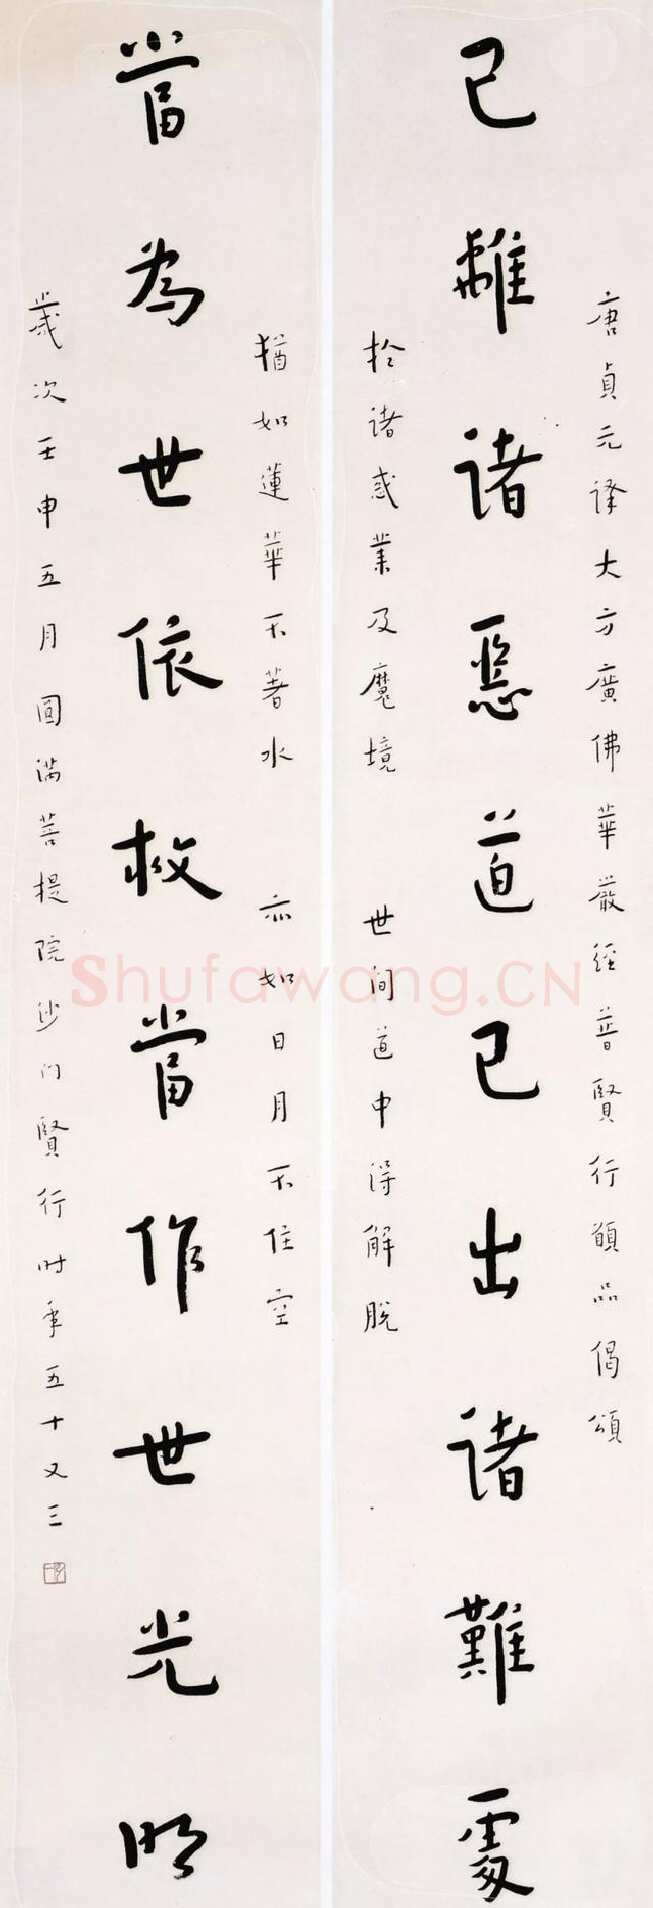 唐貞元譯大方廣佛華嚴經普賢行願品偈頌
已離諸惡道已出諸難處
於諸惑業及魔境
世间道中得解脫
猶如蓮華不著水
亦如日月不住空
當為世依救當作世光明
歲次壬申五月圓滿菩提院沙门賢行时年五十又三
Shufawang.CN